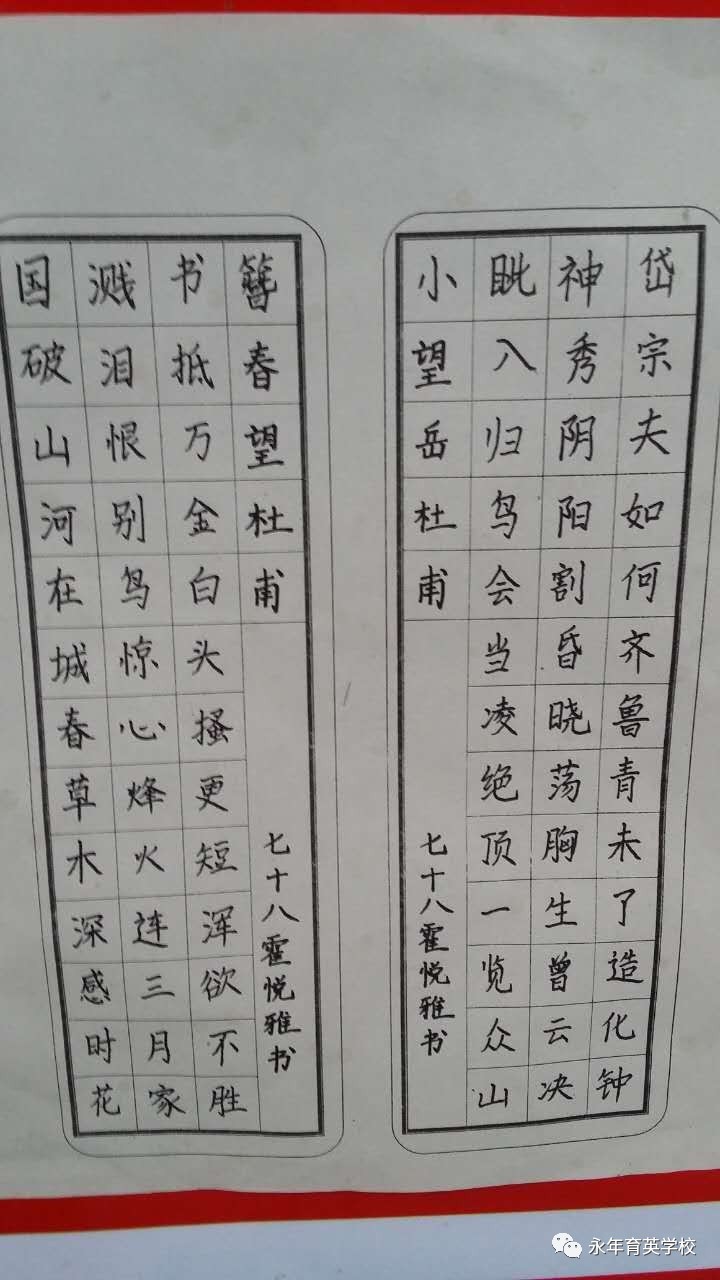 国破山河在城春草木深感时花
溅泪恨别鸟惊心烽火连三月家
书抵万金白头搔更短浑欲不胜
簪春望杜甫
七十八霍悦雅书
岱宗夫如何齐鲁青未了造化钟
神秀阴阳割昏晓荡胸生曾云决
眦入归鸟会当凌绝顶一览众山
小望岳杜甫
七十八霍悦雅书
永年育英学校